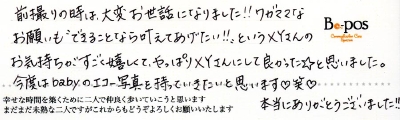 前撮りの時は、大変お世話になりました!! ワガママな
お願いも"できることなら叶えてあげたい!!"というXYさんの
お気持ちがすごい嬉しくて、やっぱりXYさんにして良かった☆と思いました。
今度はbabyのエコー写真を持っていきたいと思います♡笑♡
本当にありがとうございました!!
Be-pos
幸せな時間を築くために二人で仲良く歩いていこうと思います
まだまだ未熟な二人ですがこれからもどうぞよろしくお願いいたします